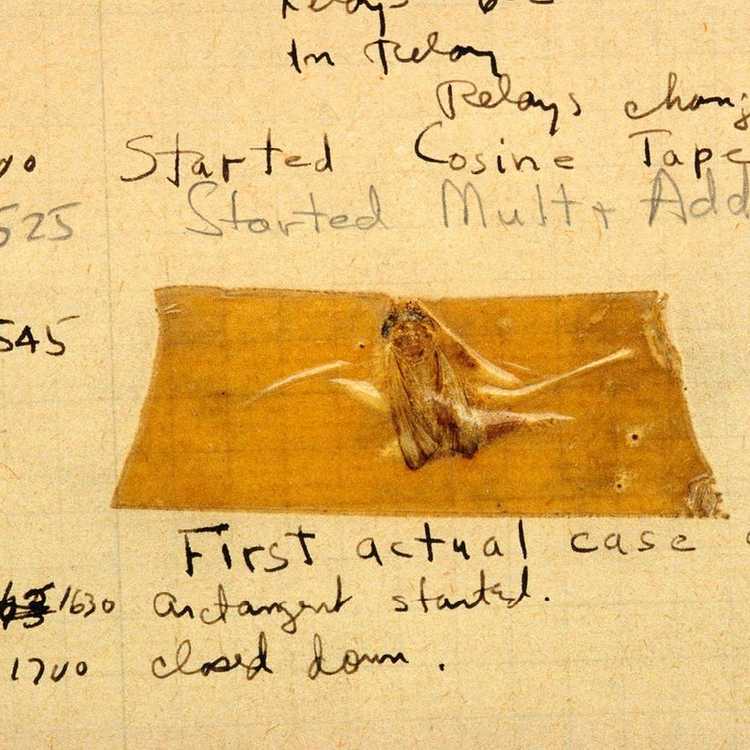 In Relay
Relays
Started Cosine Tape
525 Started Mult+ Add
545
First actual case
1630 arctangent started.
1700 closed down.